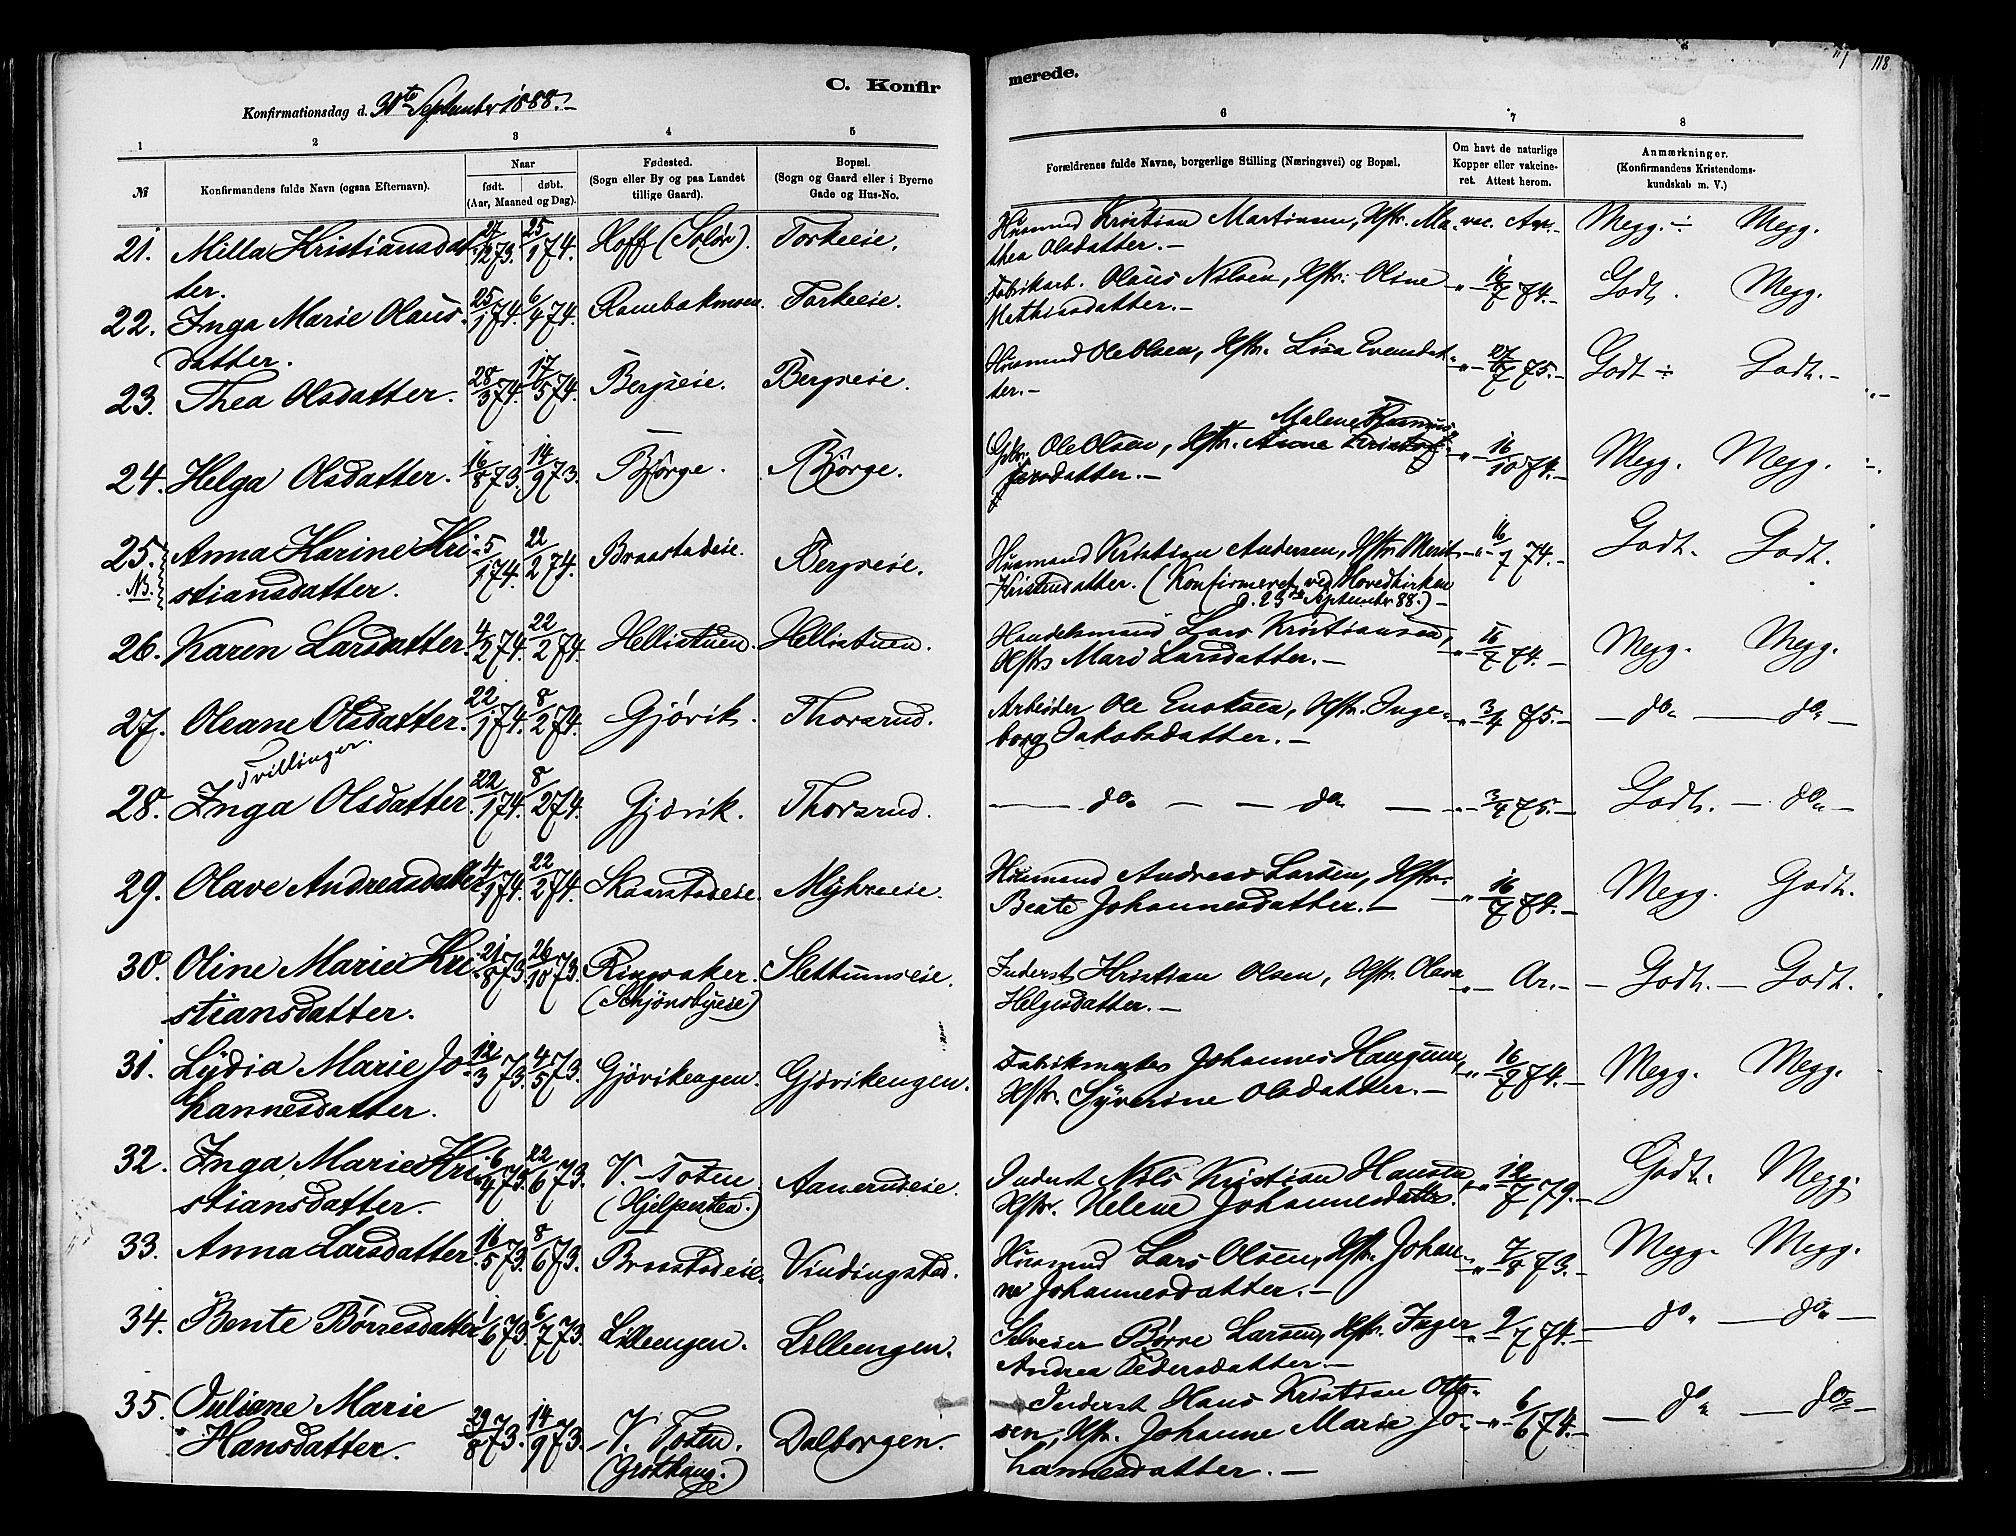 C. Konfir
Konfirmationsdag d. 30te September 1888.-
1 2 3 4 5
№ Konfirmandens fulde Navn (ogsaa Efternavn). Naar født. døbt. (Aar, Maaned og Dag). Fødested. (Sogn eller By og paa Landet tillige Gaard). Bopæl. (Sogn og Gaard eller i Byerne Gade og Hus-No.
21. Milla Kristiansdat 27/12 73. 25/1 74. Hoff (Solør). Torkeeie.
ter.
22. Inga Marie Olaus 25/1 74. 6/4 74. Rambakmoen. Torkeeie.
datter.
23. Thea Olsdatter. 28/3 74. 17/5 74. Bergseie. Bergseie.
24. Helga Olsdatter. 16/8 73. 14/9 73. Bjørge. Bjørge.
25. Anna Karine Kri 5/1 74. 22/2 74. Braastadeie. Bergseie.
NB. stiansdatter.
26. Karen Larsdatter. 4/2 74. 22/2 74. Hellistuen. Hellistuen.
27. Oleane Olsdatter. 22/1 74. 8/2 74. Gjøvik. Thorsrud.
Tvillinger.
28. Inga Olsdatter 22/1 74. 8/2 74. Gjøvik. Thorsrud.
29. Olave Andreasdatter 4/1 74. 22/2 74. Skaarstadeie. Myhreeie.
30. Oline Marie Kri 21/8 73. 26/10 73. Ringsaker. Slettumseie.
stiansdatter. (Skjønsbyeie)
31. Lydia Marie Jo 12/3 73. 4/5 73. Gjøvikengen. Gjøvikengen.
hannesdatter.
32. Inga Marie Kri 6/4 73. 22/6 73. V. Toten Aanerudeie.
stiansdatter. (Hjelpestad.)
33. Anna Larsdatter. 16/5 73. 8/6 73. Braastadeie. Vindingstad.
34. Bente Børresdatter 1/6 73. 6/7 73. Lillengen. Lillengen.
35. Juliane Marie 29/8 73. 14/9 73. V. Toten. Dalborgen.
Hansdatter. (Grøthaug.)
merede.
117 118
6 7 8
Forældrenes fulde Navne, borgerlige Stilling (Næringsvei) og Bopæl. Om havt de naturlige Kopper eller vakcineret. Attest herom. Anmærkninger. (Konfirmandens Kristendomskundskab m. V.)
Husmand Kristian Martinsen, Hstr. Ma- vac. Ar.- Megg. ÷ Megg.
thea Olsdatter.-
Fabrikarb. Olaus Nilsen, Hstr. Oline -"- 16/7 74.- Godt. Megg.
Mathiasdatter.-
Husmand Ole Olsen, Hstr. Lisa Evensdat- -"- 27/7 75.- Godt ÷ Godt.-
ter.-
Malene Rasmus
Gbr. Ole Olsen, Hstr. Anne Kristof -"- 16/10 74.- Megg. Megg.
fersdatter.-
Husmand Kristian Andersen, Hstr. Marit -"- 16/7 74.- Godt. Godt.
Kristensdatter. (Konfirmeret ved Hovedkirken
d. 23de September 88.)-
Handelsmand Lars Kristiansen, -"- 16/7 74.- Megg. Megg.
Hstr. Mari Larsdatter.-
Arbeider Ole Enoksen, Hstr. Inge- -"- 3/4 75.- - do - do -
borg Jakobsdatter.-
- do - - do - -"- 3/4 75.- Godt. - do -
Husmand Andreas Larsen, Hstr. -"- 16/7 74.- Megg. Godt.
Beate Johannesdatter.-
Inderst Kristian Olsen, Hstr. Olava -"- Ar.- - Godt. - Godt.
Helgesdatter.-
Fabrikmester Johannes Haugum, -"- 16/7 74.- Megg. Megg.
Hstr. Syverine Olsdatter.-
Inderst Nils Kristian Hansen, -"- 12/7 79.- Godt. Megg.
Hstr. Helene Johannesdatter.
Husmand Lars Olsen, Hstr. Johan- -"- 7/8 73.- Megg. Megg.
ne Johannesdatter.-
Selveier Børre Larsen, Hstr. Inger -"- 2/7 74.- - do - do -
Andrea Pedersdatter.-
Inderst Hans Kristian Otto-
sen, Hstr. Johanne Marie Jo- -"- 6/6 74.- - do - do -
hannesdatter.-